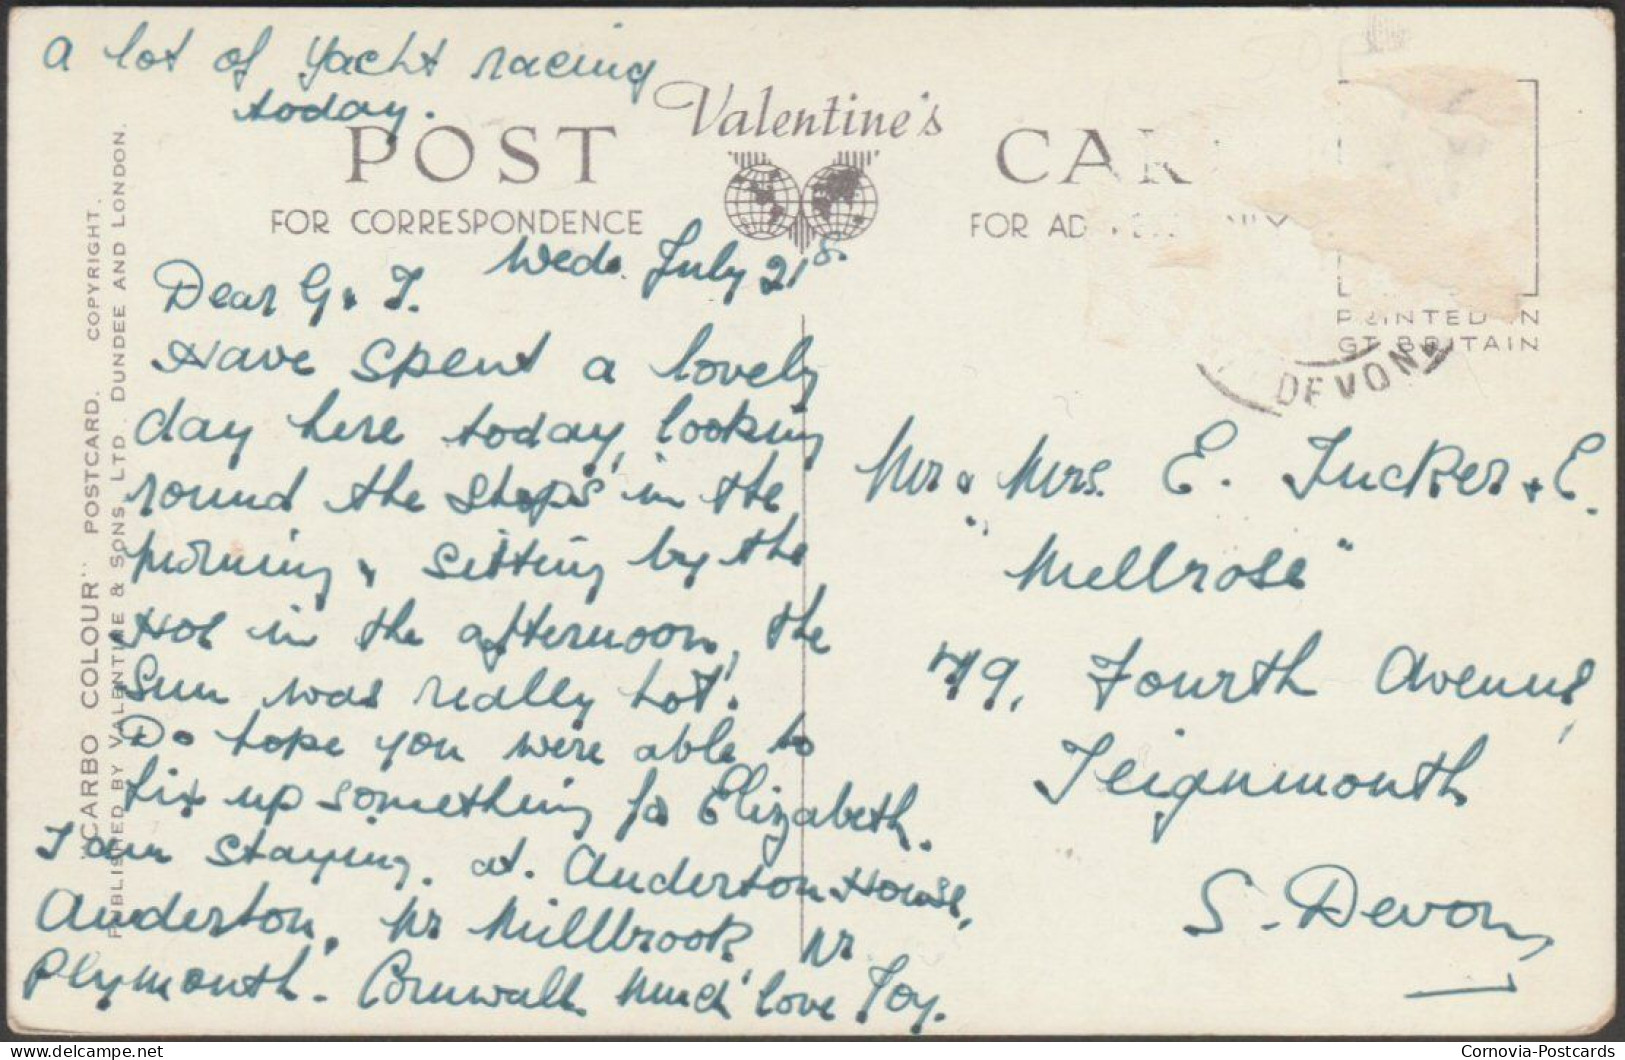 a lot of yacht racing
today.
Valentine's
POST CAR
FOR CORRESPONDENCE
FOR AD
PRINTED IN
GT BRITAIN
DEVON
"CARBO COLOUR" POSTCARD. COPYRIGHT.
PUBLISHED BY VALENTINE & SONS, LTD., DUNDEE AND LONDON.
Weds. July 21st
Dear G & T.
Have spent a lovely
day here today, looking
round the shops in the
morning & sitting by the
Hoe in the afternoon, the
Sun was really hot.
Do hope you were able to
fix up something for Elizabeth.
I am staying at Anderton House,
Anderton, Nr Millbrook Nr
Plymouth. Cornwall. Much love Joy.
Mr & Mrs. E. Tucker & E.
"Mellrose"
79, Fourth Avenue,
Teignmouth
S. Devon
Cornovia-Postcards